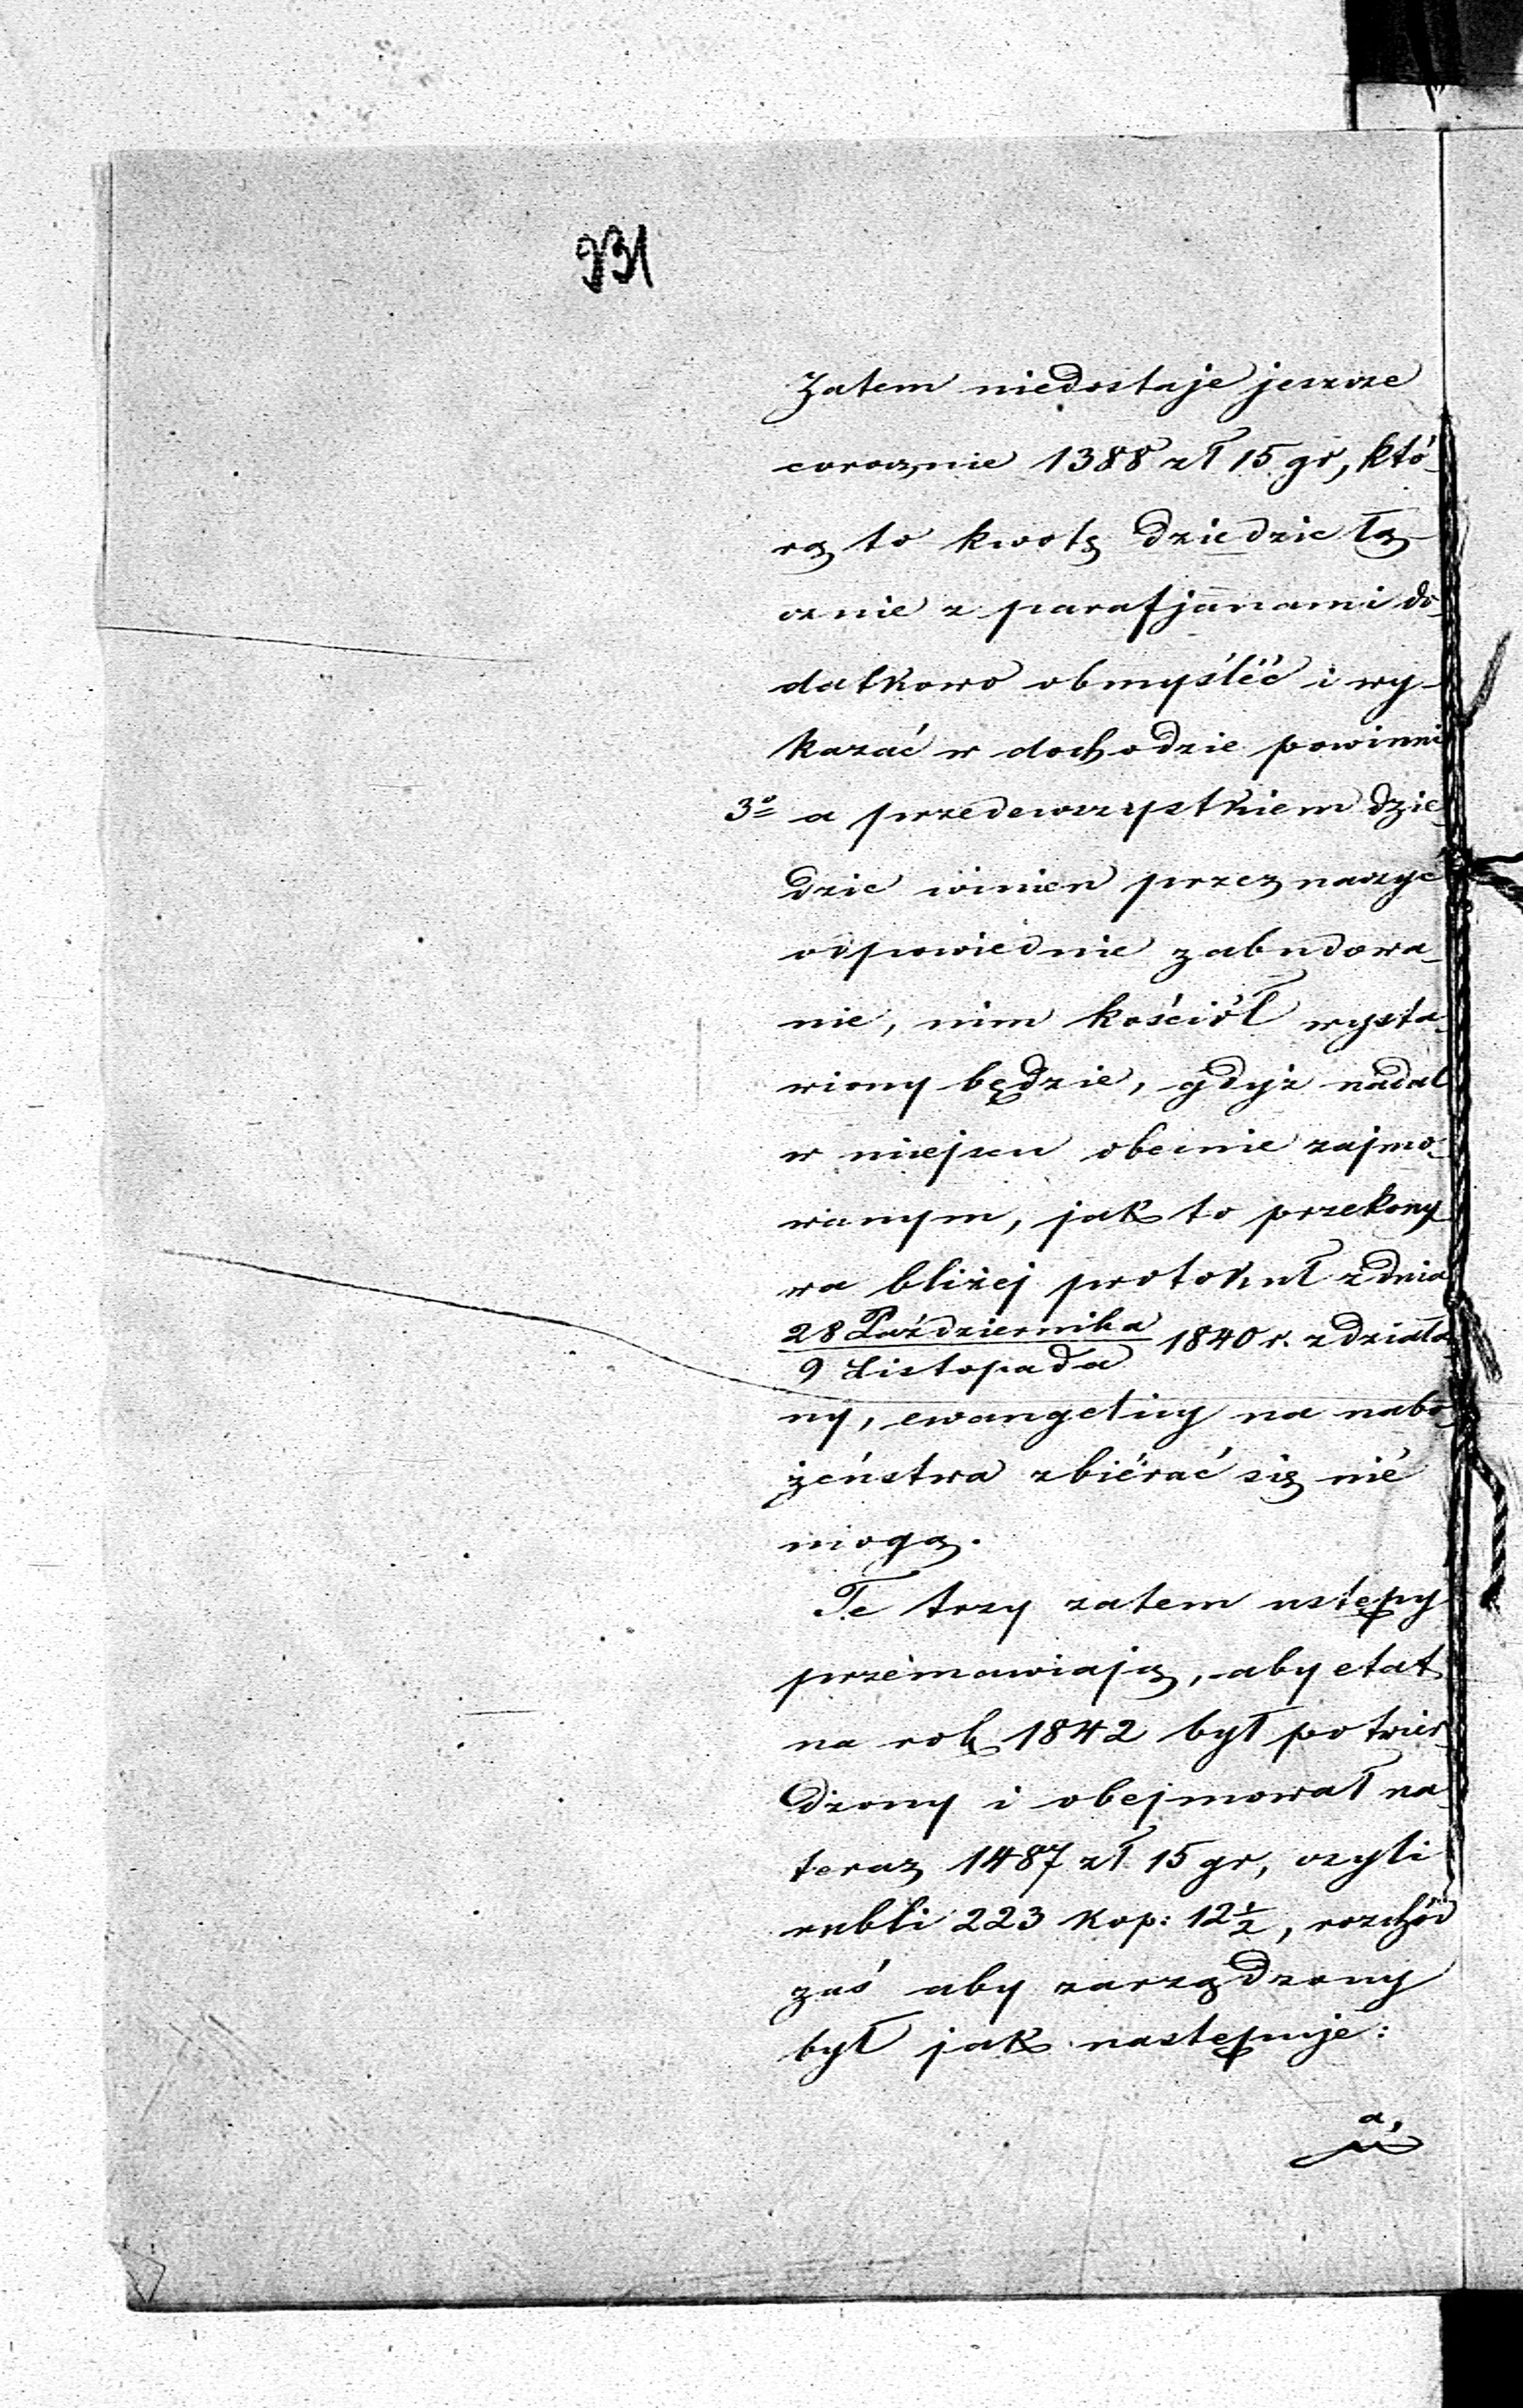 331
Zatem niedostaje jeszcze
corocznie 1388 zł 15 gr, któ-
rą to kwotę dziedzic łą-
cznie z parafjanami do-
datkowo obmyśléć i wy-
kazać w dochodzie powinni
3º a przedewszystkiem dzie-
dzic winien przeznaczyć
odpowiednie zabudowa-
nie, nim kościół wysta-
wiony będzie, gdyż nadal
w miejscu obecnie zajmo-
wanym, jak to przekony
wa bliżej protokuł z dnia
28 Października
9 Listopada 1840 r. zdziała
ny, ewangelicy na nabo
żeństwa zbiérać się nie
mogą.
Te trzy zatem ustępy
przemawiają, aby etat
na rok 1842 był potwier-
dzony i obejmował na-
teraz 1487 zł 15 gr, czyli
rubli 223 kop: 12½, rozchód
zaś aby zarządzony
był jak następuje:
a,